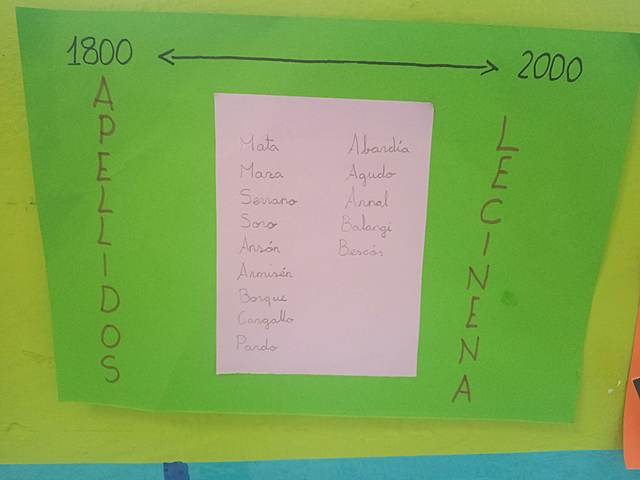 1800 2000
APELLIDOS
Mata
Maza
Serrano
Soro
Ansón
Armisén
Borque
Gargallo
Pardo
Abardía
Agudo
Arnal
Balangi
Bescós
LECINENA